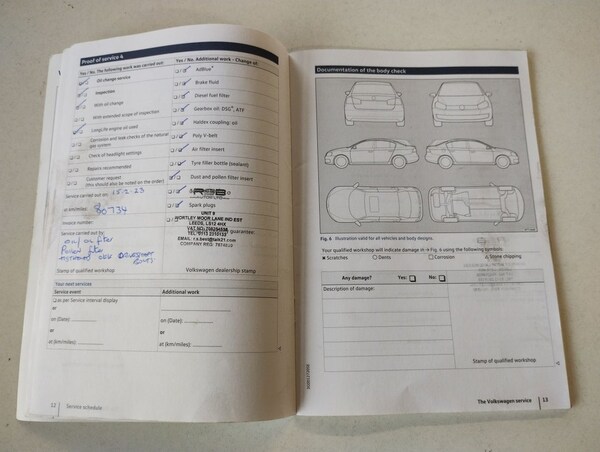 Proof of service 4
Yes / No. The following work was carried out:
Oil change service
Inspection
With oil change
With extended scope of inspection
LongLife engine oil used
Corrosion and leak checks of the natural gas system
Check of headlight settings
Repairs recommended
Customer request
(this should also be noted on the order)
Service carried out on: 15-2-23
at km/miles: 80734
Service number:
Service carried out by:
Stamp of qualified workshop
Yes / No. Additional work - Change oil
AdBlue®
Brake fluid
Diesel fuel filter
Gearbox oil: DSG®, ATF
Haldex coupling: oil
Poly V-belt
Air filter insert
Tyre filler bottle (sealant)
Dust and pollen filter insert
Spark plugs
UNIT 8
WORTLEY MOOR LANE IND EST
LEEDS, LS12 4HX
guarantee:
Volkswagen dealership stamp
Your next services
Service event
Additional work
as per Service interval display
or
on (Date):
or
at (km/miles):
on (Date):
or
at (km/miles):
12 Service schedule
Documentation of the body check
Fig. 6 Illustration valid for all vehicles and body designs.
Your qualified workshop will indicate damage in ⇒ Fig. 6 using the following symbols:
Scratches
Dents
Corrosion
Stone chipping
Any damage? Yes: No:
Description of damage:
Stamp of qualified workshop
The Volkswagen service 13